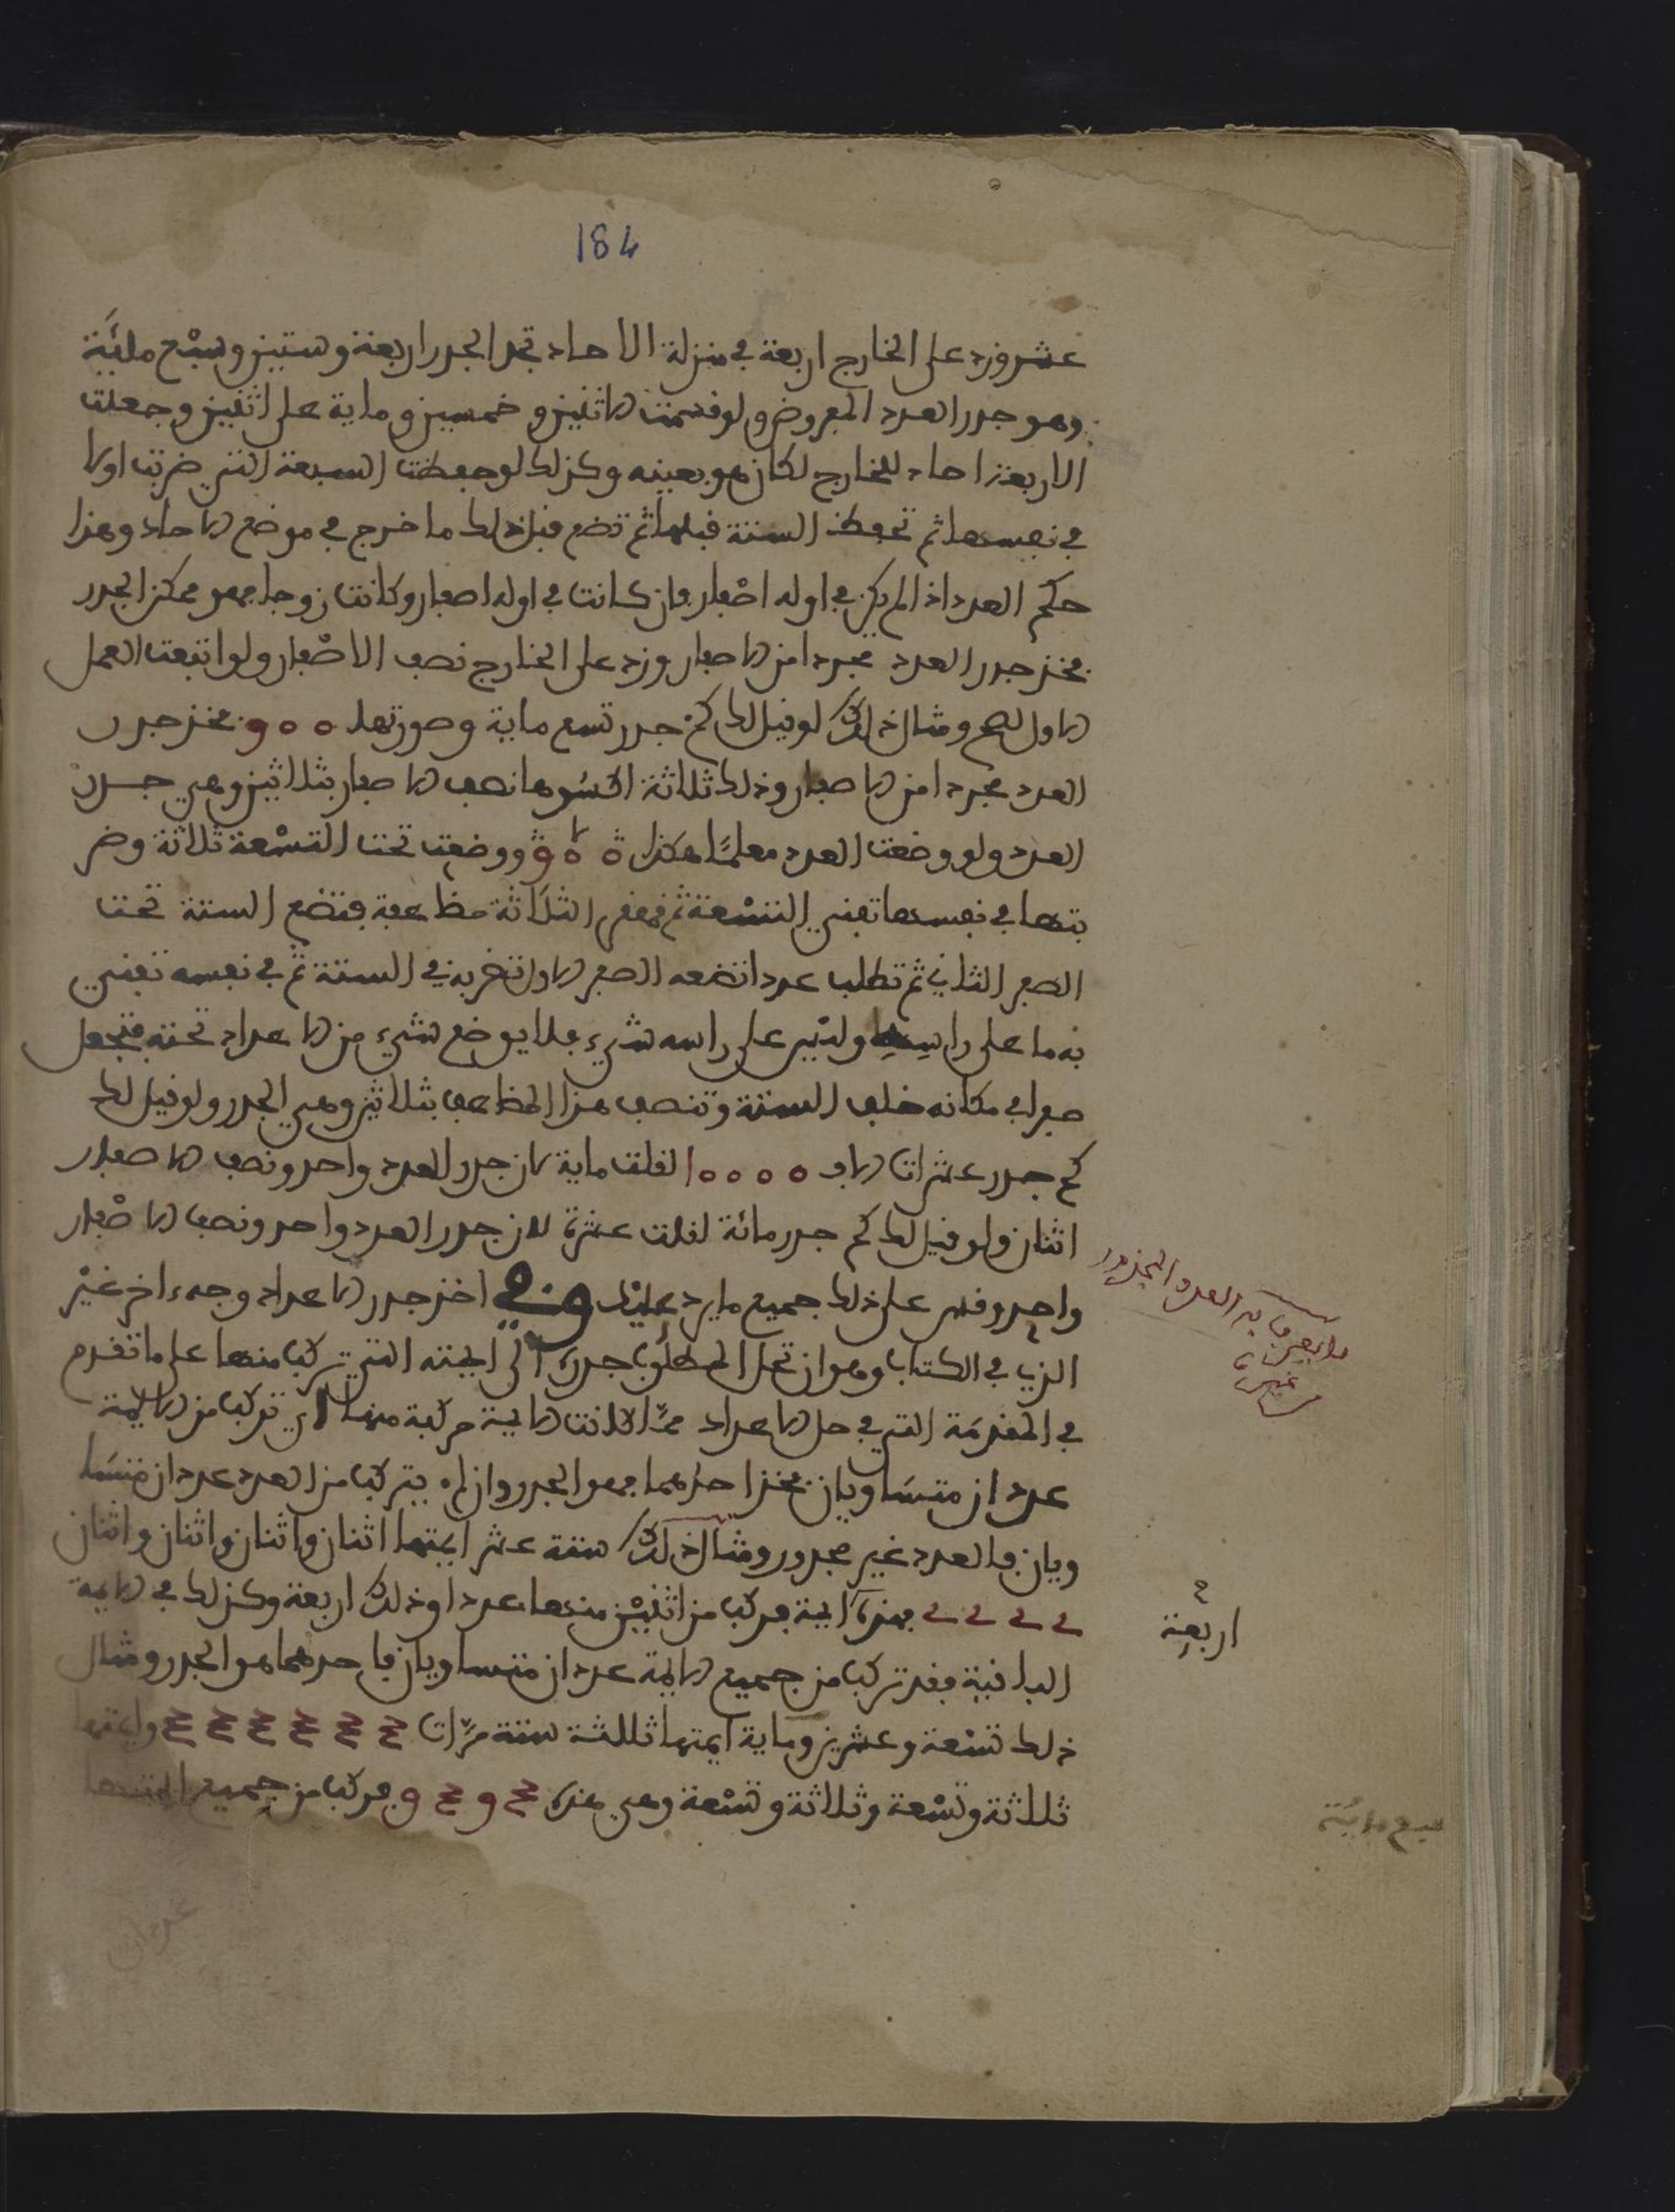 184
عشر وزد على الخارج اربعة في منزلة الاحاد تجد الجدر اربعة وستين وسبع مائة
وهو جدر العدد المفروض ولو قسمت الاثنين و خمسين و ماية على اثنين وجعلت
الاربعة احاد للخارج لكان هو بعينه وكذلك لو حفظت السبعة التي ضربت اولا
في نفسها ثم تحفظ الستة قبلها ثم تضع قبل ذلك ما خرج في موضع الاحاد وهذا
حكم العدد اذا لم يكن في اوله اصفار فان كانت في اوله اصفار وكانت زوجا فهو ممكن الجدر
فخذ جدر العدد مجردا من الاصفار وزد على الخارج نصف الاصفار ولو اتبعت العمل
الاول لصح ومثال ذلك لو قيل لك كم جدر تسع ماية وصورتها 900 فخذ جدر
العدد مجردا من الاصفار وذلك ثلاثة اكسوها نصف الاصفار بثلاثين وهي جدر
العدد ولو وضعت العدد معلما هكذا 900 ووضعت تحت التسعة ثلاثة وضر
بتها في نفسها تفني التسعة ثم قهقر الثلاثة مضاعفة فتضع الستة تحت
الصفر الثاني ثم تطلب عددا تضعه الصفر الاول تضربه في الستة ثم في نفسه تفني
به ما على راسه وليس على راسه شيء فلا يوضع شيء من الاعداد تحته فتجعل
صفرا في مكانه خلف الستة وتنصف هذا المضاعف بثلاثين وهي الجدر ولو قيل لك
كم جدر عشرات الاف 10000 لقلت ماية لان جدر العدد واحد ونصف الاصفار
اثنان ولو قيل لك كم جدر مائة لقلت عشرة لان جدر العدد واحد ونصف الاصفار
واحد وقس على ذلك جميع ما يرد عليك وفي اخذ جدر الاعداد وجه اخر غير
الذي في الكتاب وهو ان تحل المطلوب جدره الى ايمته التي تركب منها على ما تقدم
في المقدمة التي في حل الاعداد ثم اذا كانت الايمة مركبة منها اي تركب من الايمة
عددان متساويان فخذ احدهما فهو الجدر وان لم يتركب من العدد عددان متسا
ويان فالعدد غير مجدور ومثال ذلك ستة عشر ايمتها اثنان واثنان واثنان واثنان
2 2 2 2 فهذه ايمة فركب من اثنين منها عددا وذلك اربعة وكذلك في الايمة
الباقية فقد تركب من جميع الايمة عددان متساويان فاحدهما هو الجدر ومثال
ذلك تسعة وعشرين وماية ايمتها ثلثة ستة مرات 3 3 3 3 3 3 وايمتها
ثلاثة وتسعة وثلاثة وتسعة وهي هذه 3 9 3 9 فركب من جميع
ما يعرف به العدد المجذور
من غيره
اربعة
سبع مائة